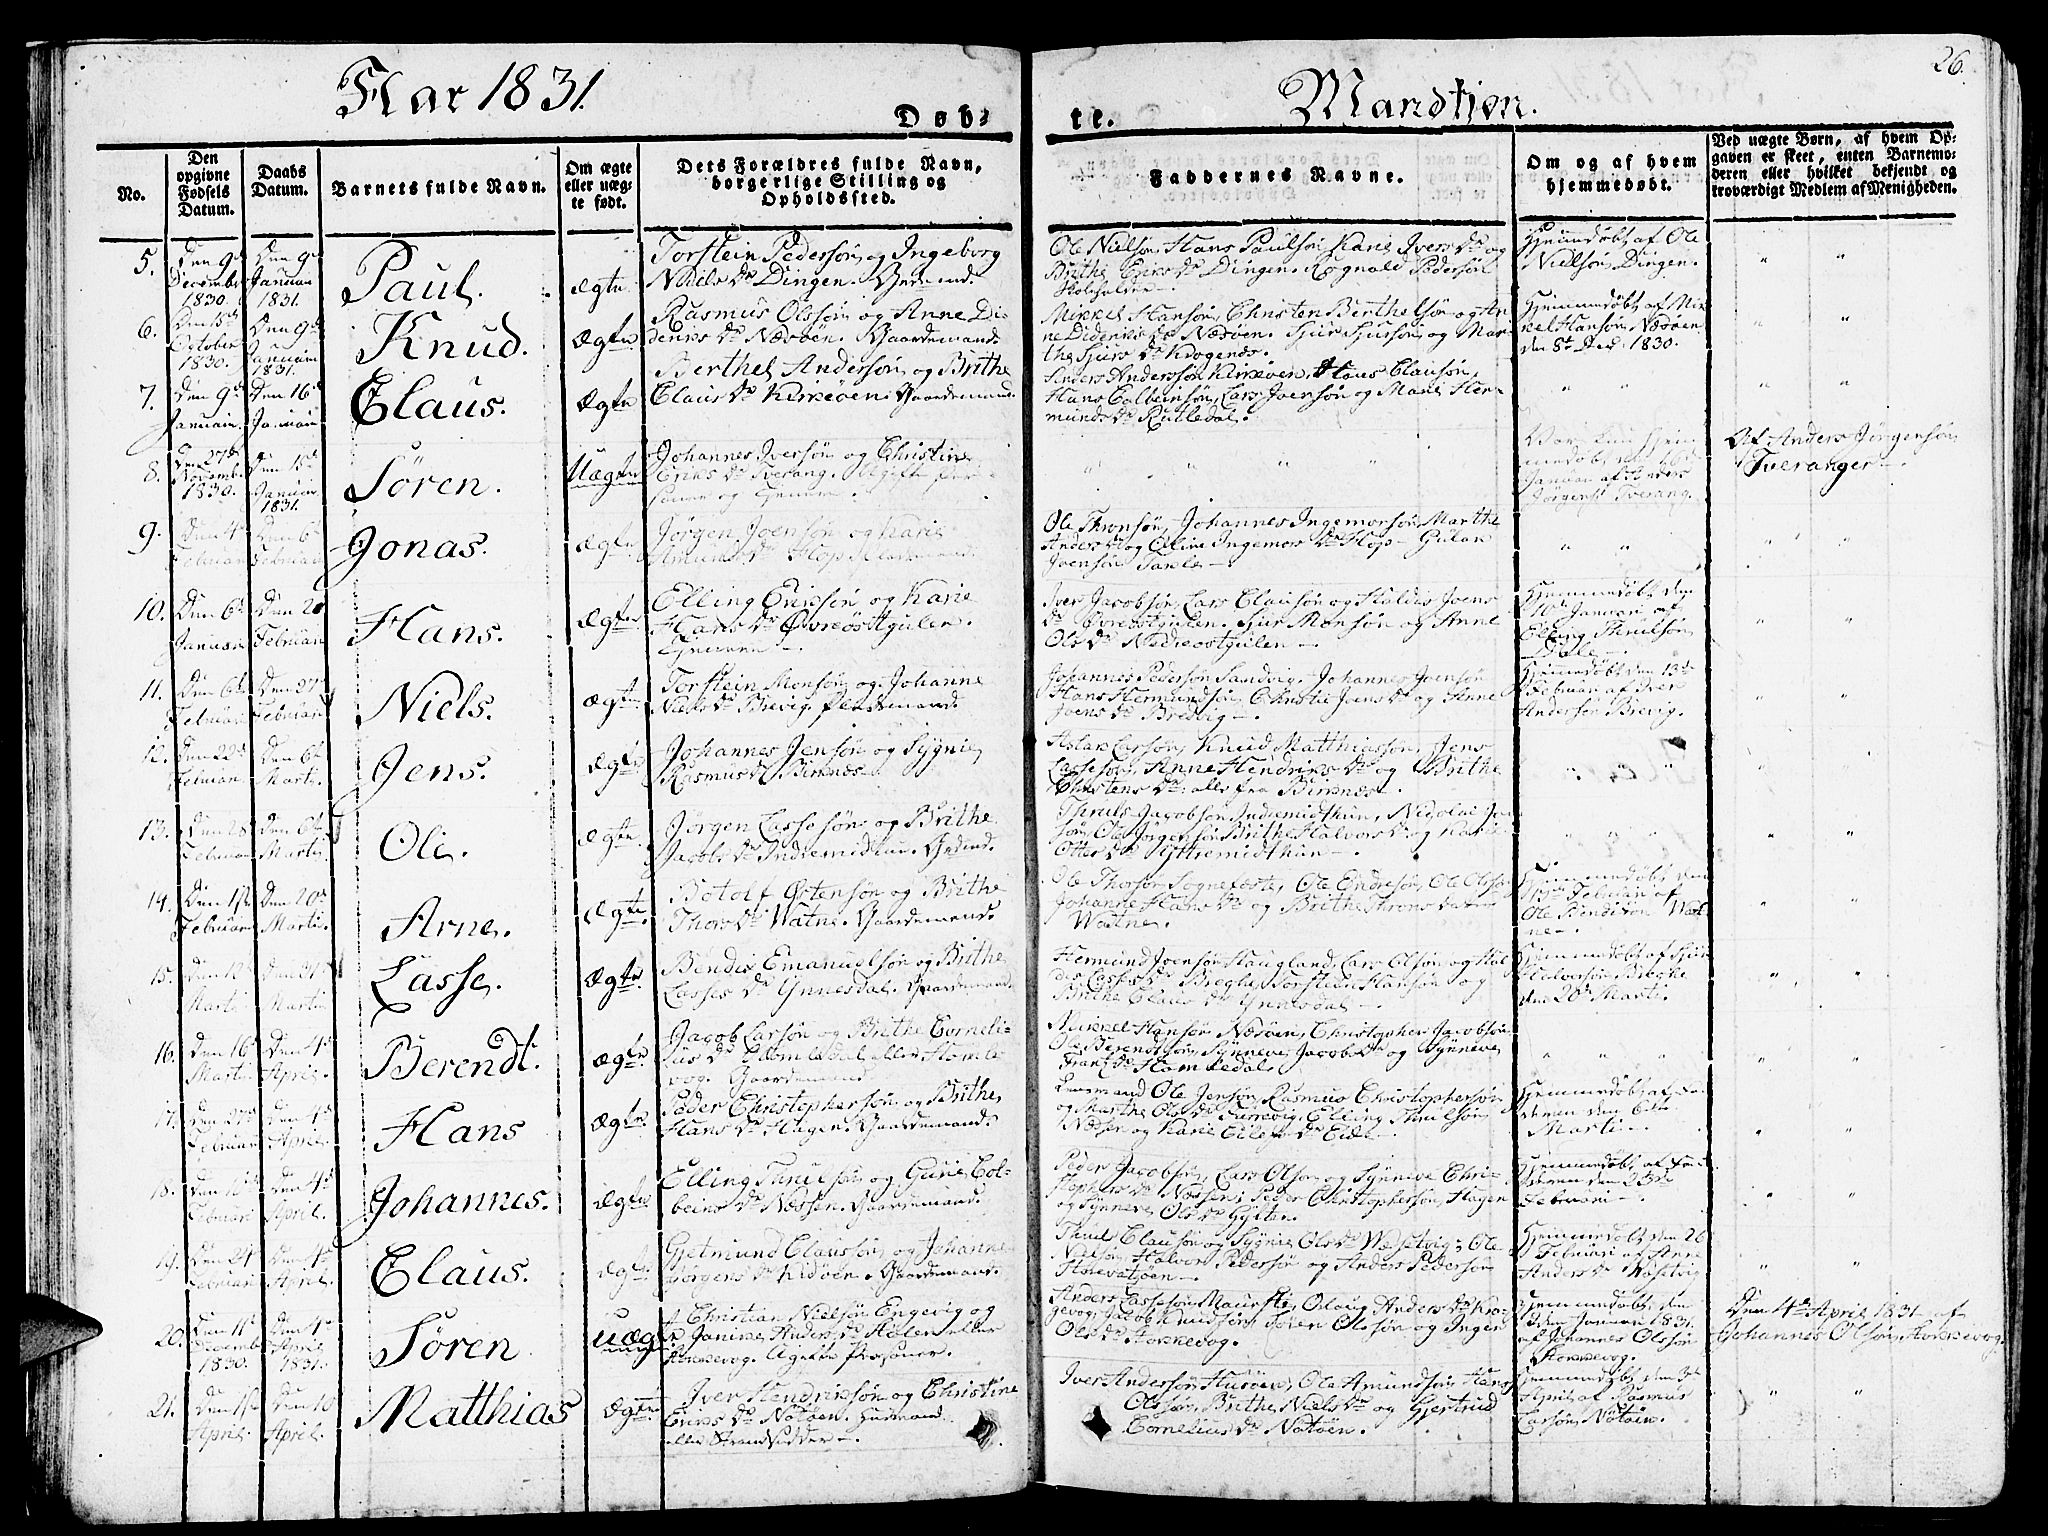 Aar 1831.
Døb-
te.
Mandkjøn.
26.
No.
Den opgivne Fødsels Datum.
Daabs Datum.
Barnets fulde Navn.
Om ægte eller uægte født.
Dets Forældres fulde Navn, borgerlige Stilling og Opholdssted.
Faddernes Navne.
Om og af hvem hjemmedøbt.
Ved uægte Børn, af hvem Opgaven er skeet, enten Barnemoderen eller hvilket bekjendt og troværdigt Medlem af Menigheden.
5. Den 9de December 1830. Den 9de Januari 1831. Paul. ægte
Torstein Pedersøn og Ingeborg
Niels Dr Dingen.
Ole Nielsøn, Hans Paulsøn, Karie Ivers Dr og
Brithe Eriks Dr Dingen. Rognald Pedersøn
Skoleholder.
Hjemmedøbt af Ole
Nielsøn Dingen.
6. October 1830. Den 9de Januari 1831. Knud. Ægte
Rasmus Olssøn og Anne Di-
deriks Dr Næsøen. Gaardmand.
Mikkel Hansøn, Christen Berthelsøn og An-
ne Dideriks Dr Næsøen. Siur Siursøn og Mar-
the Siurs Dr Krogenæs.
Hjemmedøbt af Mik-
kel Hansøn Næsøen
den 8de Dec. 1830.
7. Den 9de Januari. Den 16de Januari Claus. Ægte
Berthel Andersøn og Brithe
Claus Dr Kirkøen. Gaardemand.
Anders Anderssøn Kirkøen, Hans Clausøn,
Hans Colbeinsøn, Lars Joensøn og Mari Her-
munds Dr Rutledal.
8. Den 27de November 1830. Den 15de Januari 1831. Søren. Uægte
Johannes Iversøn og Christine
Eriks Dr Tverang. Ugifte Per-
soner
Januar af Anders
Jørgensøn Tverang.
Af Anders Jørgensøn
Tveranger.
9. Den 4de Februari Den 6te Februari Jonas. ægte
Jørgen Joensøn og Karie
Amunds Dr Flop
Ole Thronsøn, Johannes Ingemorsøn, Marthe
Anders Dr og Oline Ingemors Dr Flop. Gulak
Joensøn Takle.
10. Den 6te Januari Den 20 Februari Hans. ægte
Elling Eriksøn og Karie
Hans Dr Øvreøstgulen.
Iver Jacobsøn, Lars Clausøn og Haldis Joens
Dr Øvreostgulen. Siur Monsøn og Anne
Ols Dr Nedreostgulen.
Hjemmedøbt den
10de Januari af
Elling Thrulsøn
Dale.
11. Den 6te Februari Den 27de Februari Niels. ægte
Torstein Monsøn og Johanne
Niels Dr Brevig.
Johannes Pedersøn Sandvig. Johannes Joensøn
Hans Hermundsøn, Christie Joens Dr og Anne
Joens Dr Brevig.
Hjemmedøbt den 13de
Februari af Iver
Andersøn Brevig.
12. Den 22de Februari Den 6te Marti. Jens. ægte
Johannes Jensøn og Sygnie
Rasmus Dr Birknæs.
Aslak Larsøn, Knud Matthiassøn, Jens
Lassesøn, Anne Hendriks Dr og Brithe
Christens Dr: alle fra Birknæs.
13. Den 28de Februari Den 6te Marti. Ole. ægte
Jørgen Lassesøn og Brithe
Jacobs Dr Indremidthun.
Thruls Jacobsøn Indremidthun, Nicolai Jo-
søn, Ole Ingensøn, Brithe Halvors Dr og Karie
Otters Dr Yttremidthun.
14. Februari Den 20de Marti. Arne. ægte
Botolf Østensøn og Brithe
Thors Dr Watne. Gaardemand.
Ole Thorsøn Sognefæste, Ole Endresøn, Ole Olssøn
Johanne Hans Dr og Brithe Throns datter
Watne.
Hjemmedøbt den
Februari af
Ole Bendixøn Wat-
ne.
15. Marti Marti Lasse. Ægte
Bendix Emanuelsøn og Brithe
Lasses Dr Ynnesdal. Gaardemand.
Hermund Joensøn Haugland, Lars Olsøn og Hal-
dis Lasses Dr Breghe, Torstein Hansøn og
Brithe Claus Dr Ynnesdal.
Hjemmedøbt af Siur
Halvorsøn Breghe
den 20de Marti.
16. Den 16de Marti Den 4de April. Berendt. ægte
Jacob Larsøn og Brithe Corneli-
us Dr
vog. Gaardemand
Mikkel Hansøn Næsøen, Christopher Jacobsøn
Ole Berendtsøn, Synneve Jacobs Dr og Synneve
Frantz Dr Homledal.
17. Den 27de Februari Den 4de April. Hans ægte
Peder Christophersøn og Brithe
Hans Dr Hagen. Gaardemand.
Lensmand Ole Jensøn, Rasmus Christophersøn
og Marthe Ols Dr Furrevig. Elling Thrulsøn
Næsen og Karie Eilers Dr Eide.
Hjemmedøbt af Fa-
deren den 6te
Marti.
18. Februari Den 4de April. Johannes. ægte
Elling Thrulsøn og Gurie Col-
beins Dr Næssen. Gaardemand.
Peder Jacobsøn, Lars Olsøn og Synneve Chri-
stophers Dr Næssen; Peder Christophersøn Hagen
og Synneve Ols Dr Gylten.
Hjemmedøbt af Fa-
deren den 23de
Februari.
19. Den 24 Februari Den 4de April. Claus. ægte
Gjetmund Claussøn og Johanne
Jørgens Dr Kidøen. Gaardemand.
Thrul Clausøn og Sygnie Ols Dr Wasetvig; Ole
Nielsøn, Halvor Pedersøn og Anders Pedersøn
Hjemmedøbt den 26
Februari af Anne
Anders Dr Wasetvig
20. Den 11te December 1830. Den 4de April 1831. Søren uægte
Christian Nielsøn Engevig og
Janike Anders Dr Hølen eller
Stokkevog. Ugifte Personer.
Anders Lassesøn Maurstie, Olaug Anders Dr Kro-
gevog, Jacob Knudsøn, Søren Olssøn og Inger
Ols Dr Stokkevog.
Hjemmedøbt den
Januari 1831
af Johannes Olssøn
Stokkevog.
Den 4de April 1831 af
Johannes Olsøn Stokkevog.
21. April. Den 10 April. Matthias ægte
Iver Hendriksøn og Christine
Eriks Dr Notøen. Husmand
eller Strandsidder.
Iver Andersøn Husøen, Ole Amundsøn, Hans
Olssøn, Brithe Niels Dr og Gjertrud
Cornelius Dr Notøen.
Hjemmedøbt den 3de
April af Rasmus
Larsøn Nötöen.